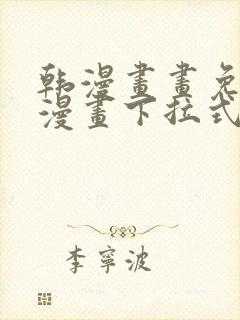 韩漫畫畫免
漫畫下拉式
李寧波